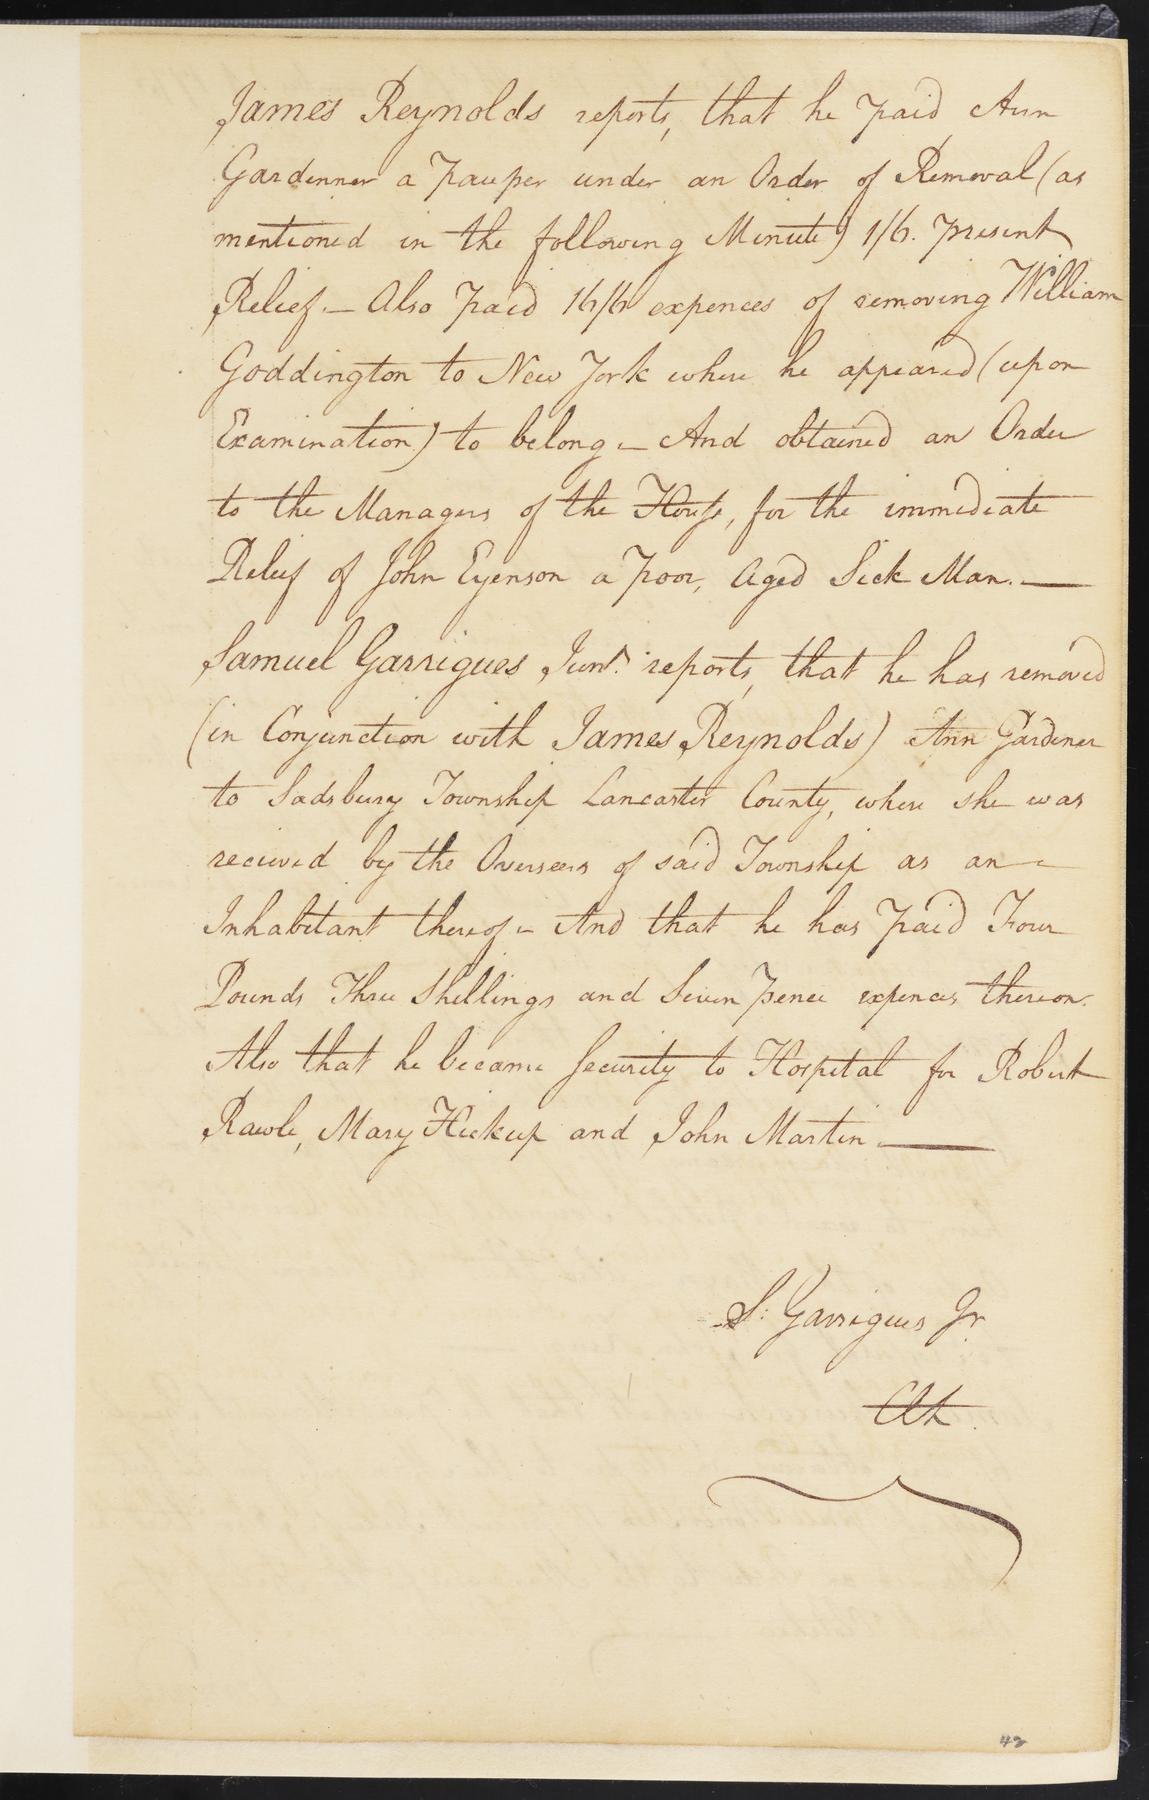 James Reynolds reports, that he paid Ann
Gardenner a pauper under an Order of Removal (as
mentioned in the following Minute) 1/6. present
Relief.— Also paid 16/6 expences of removing William
Goddington to New York where he appeared (upon
Examination) to belong — And obtained an Order
to the Managers of the House, for the immediate
Relief of John Eyenson a poor, Aged Sick Man. —
Samuel Garrigues Junr. reports, that he has removed
(in Conjunction with James Reynolds) Ann Gardener
to Sadsbury Township Lancaster County, where she was
recieved by the Overseers of said Township as an
Inhabitant thereof — And that he has paid Four
Pounds Three Shillings and Seven pence expences thereon.
Also that he became Security to Hospital for Robert
Rawle, Mary Hickup and John Martin —
S: Garrigues Jr
Clk
42